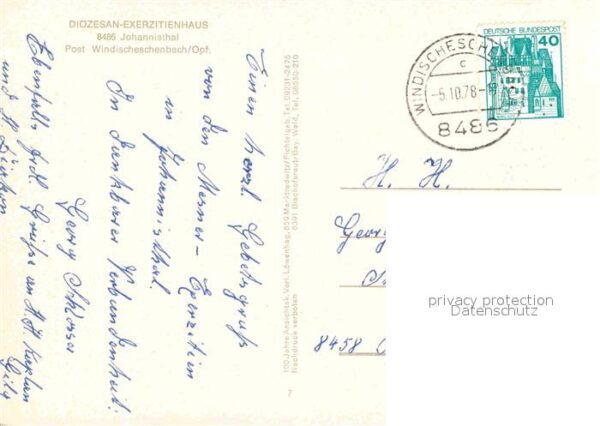 DIÖZESAN-EXERZITIENHAUS
8486 Johannisthal
Post Windischeschenbach/Opf.
Einen herzl. Gebetsgruß
von den Mesner-Exerzitien
in Johannisthal.
In dankbarer Verbundenheit!
Georg Schlosser
Ebenfalls frdl. Grüße an H. H. Kaplan
und H.
100 Jahre Ansichtsk. Verl. Löwenhag, 859 Marktredwitz/Fichtelgeb. Tel. 09231-2475
8391 Bischofsreut/Bay. Wald, Tel. 08550-210
Nachdruck verboten
7
WINDISCHESCHE
c
-5.10.78-
8486
DEUTSCHE BUNDESPOST
40
H. H.
Georg
8458
privacy protection
Datenschutz